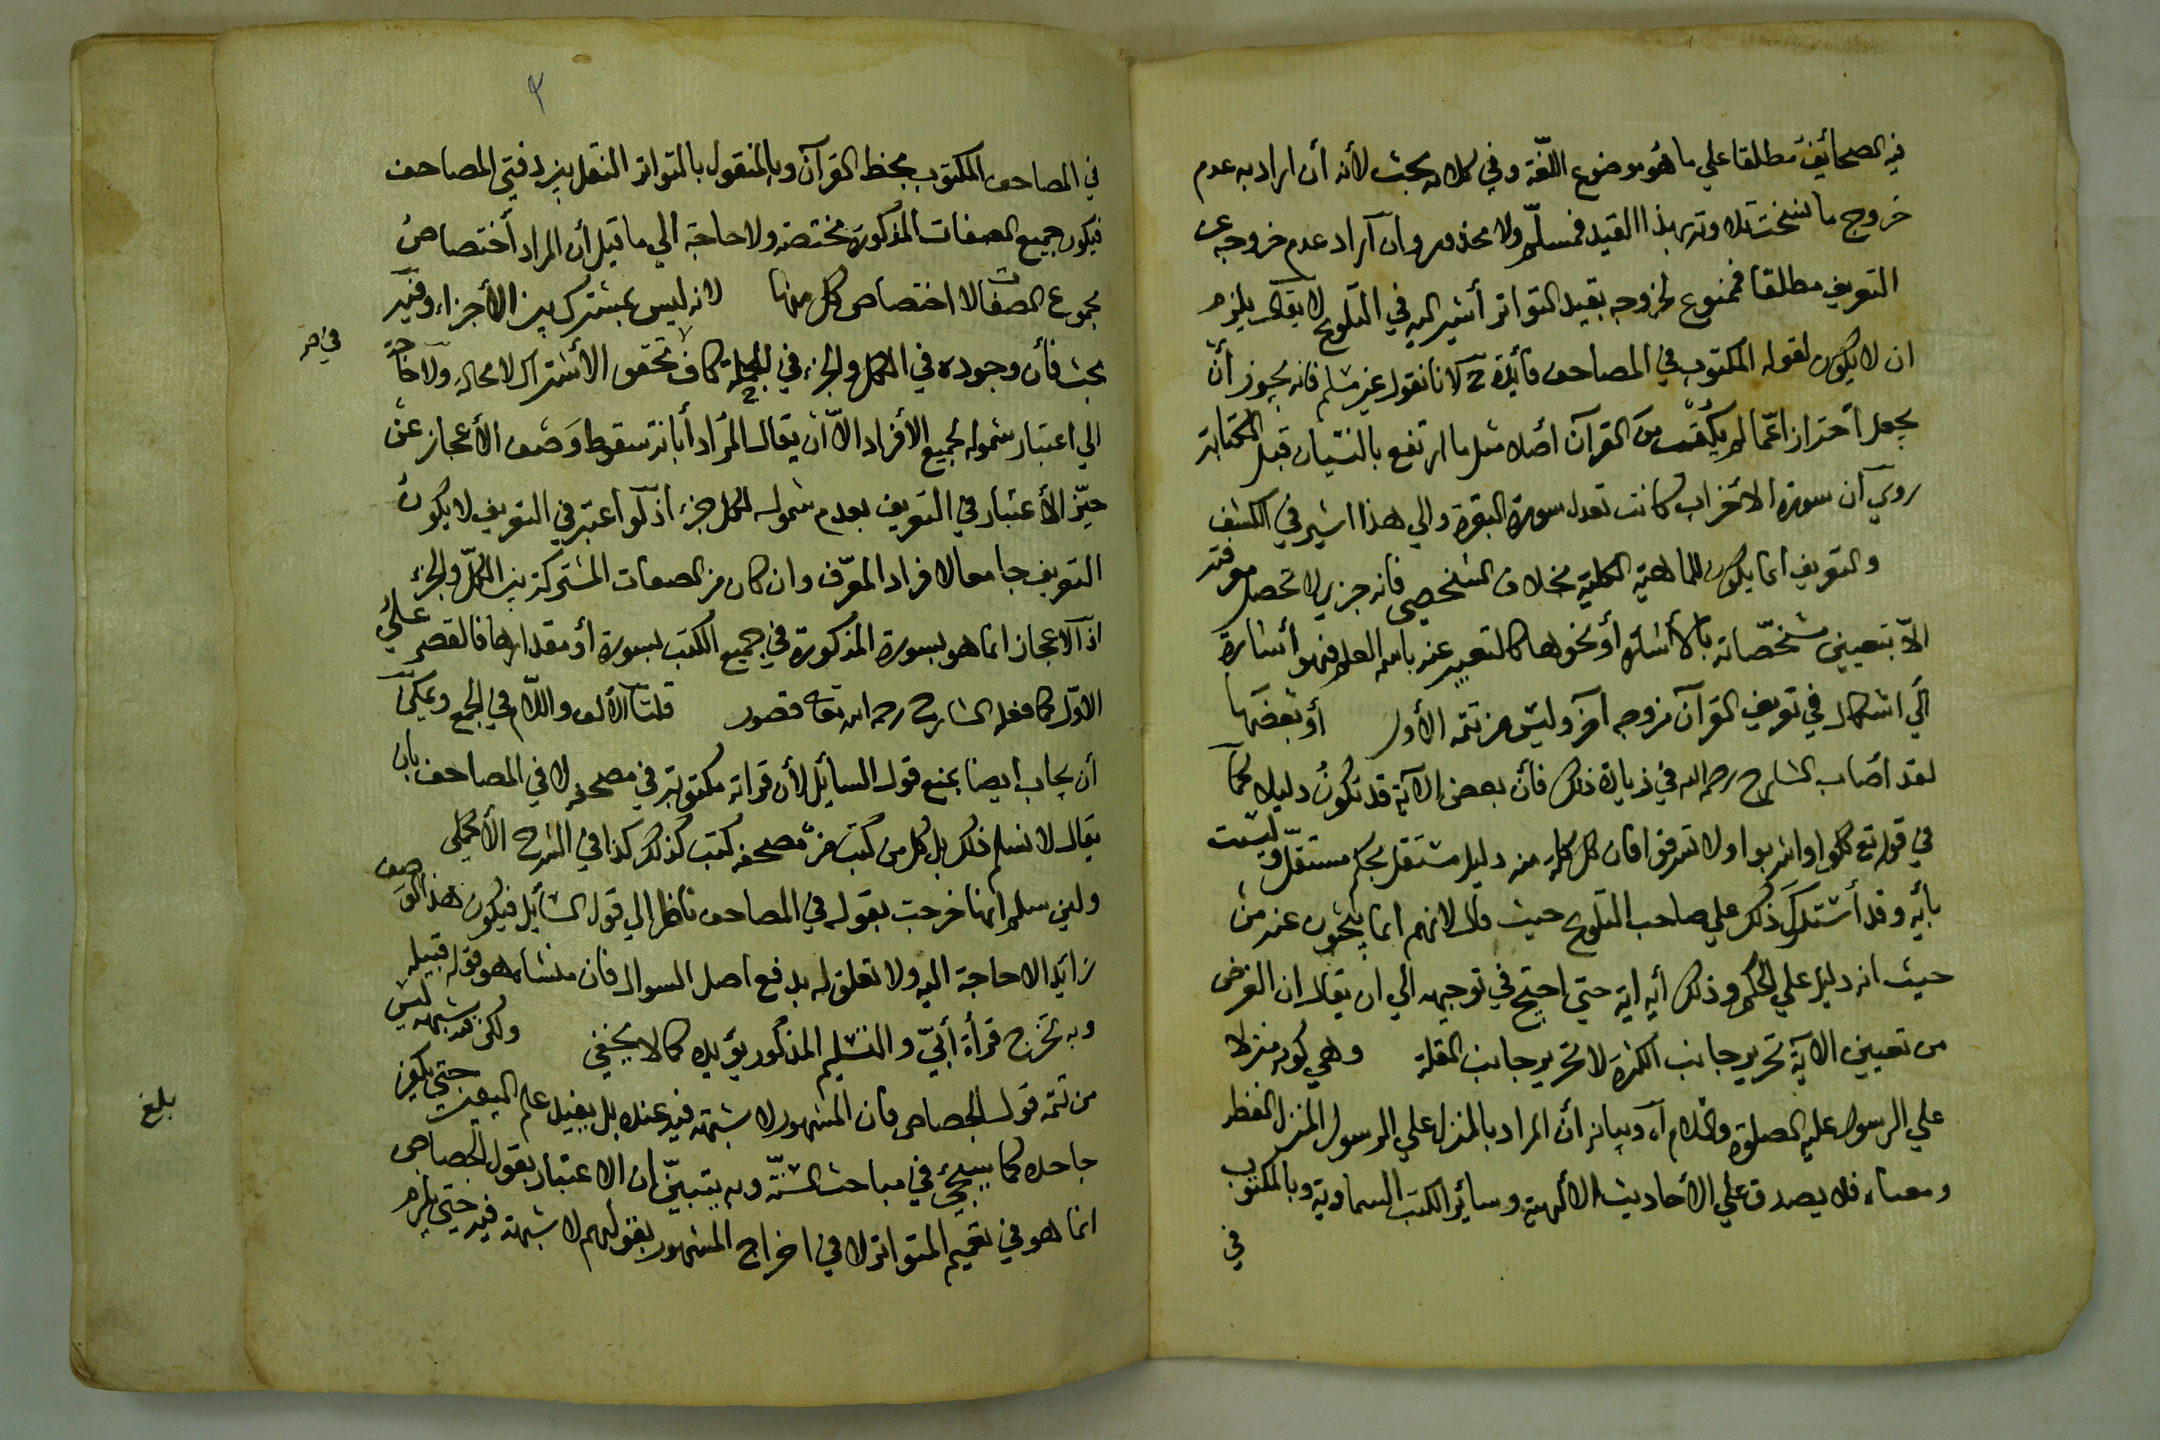 فيه الصحائف مطلقا علي ما هو موضوع اللغة وفي كلامه بحث لأنه أن اراد به عدم
خروج ما نسخت تلاوته بهذا القيد فمسلّم ولا محذور وان آراد عدم خروجه عن
التعريف مطلقا فممنوع لخروجه بقيد التواتر أشير اليه في التلويح لا يقال يلزم
ان لا يكون لقوله المكتوب في المصاحف فأيدة ح لانا نقول غير مسلم فانه يجوز أن
يجعل أحترازا عمّا لم يكتب من القرآن أصلا مثل ما ارتفع بالنسيان قبل الكتابة
روي آن سورة الاحزاب كانت تعدل سورة البقرة والي هذا اشير في الكشف
والتعريف انما يكون للماهية الكلية بخلاف الشخصي فانه جزيي لا تحصل معرفته
الاّ بتعيين مشخصاته بالأشارة أو نحوها كالتعبير عنه باسم العلم فهو أشارة
الي اشكال في تعريف القرآن من وجه آخر وليس من تتمه الأول أو بعضها
لقد أصاب الشارح رحمه الله في زيادة ذلك فأن بعض الآية قد تكون دليلا كما
في قوله تع كلوا واشربوا ولا تسرفوا فان كل كلمة منه دليل مستقل بحكم مستقل وليست
بأية وقد أستدرك ذلك علي صاحب التلويح حيث قال لانهم انما يبحثون عنه من
حيث انه دليل علي الحكم وذلك أية اية حتي احتيج في توجيهه الي ان يقال ان الغرض
من تعيين الآية تحرير جانب الكثرة لا تحرير جانب القلة وهي كونه منزلا
علي الرسول عليه الصلوة والسلام آه وبيانه أن المراد بالمنزل علي الرسول المنزل لفظه
ومعناه فلا يصدق علي الأحاديث الألهية وسائر الكتب السماوية وبالمكتوب
في
٣
في المصاحف المكتوب بخط القرآن وبالمنقول بالتواتر النقل بين دفتي المصاحف
فيكون جميع الصفات المذكورة مختصه ولا حاجة الي ما قيل أن المراد أختصاص
مجموع الصفات لا اختصاص كل منها لانه ليس بمشترك بين الأجزاء وفيه
بحث فأن وجوده في الكل والجزء في الجملة كاف تحقق الأشتراك لا محالة ولا حاجة
في صح
الي اعتبار شموله لجميع الأفراد الاّ آن يقال المراد أبانة سقوط وصف الأعجاز عن
حيّز الأعتبار في التعريف بعدم شموله لكل جزء اذ لو اعتبر في التعريف لا يكون
التعريف جامعا لافراد المعرّف وان كان من الصفات المشتركة بين الكلّ والجزء
اذ الاعجاز انما هو بسورة المذكورة في جميع الكتب بسورة أو مقدارها فالقصر علي
الاول كما فعله الشارح رحمه الله تعالي قصور قلنا الألف واللام في الجمع ويمكن
أن يجاب ايضا بمنع قول السائل لأن قراته مكتوبة في مصحفه لا في المصاحف بان
يقال لا نسلم ذلك بل كل من كتب من مصحفه كتب كذلك كذا في الشرح الأكملي
ولئن سلم انها خرجت بقوله في المصاحف ناظرا الي قول السائل فيكون هذا الوصف
زائدا لا حاجة اليه ولا تعلق له بدفع اصل السوال فان منشاه هو قوله قبيله
وبه تخرج قرأة أبيّ والتسليم المذكور يؤيده كما لا يخفي ولكن فيه شبهة ليس
من تتمه قول الجصاص فان المشهور لا شبهة فيه عنده بل يفيد علم اليقين حتي يكفر
جاحده كما سيجئ في مباحث السنّة وبه يتبيّن ان الاعتبار بقول الجصاص
انما هو في تعميم المتواتر لا في اخراج المشهور بقولهم لا شبهة فيه حتي يلزم
بلغ